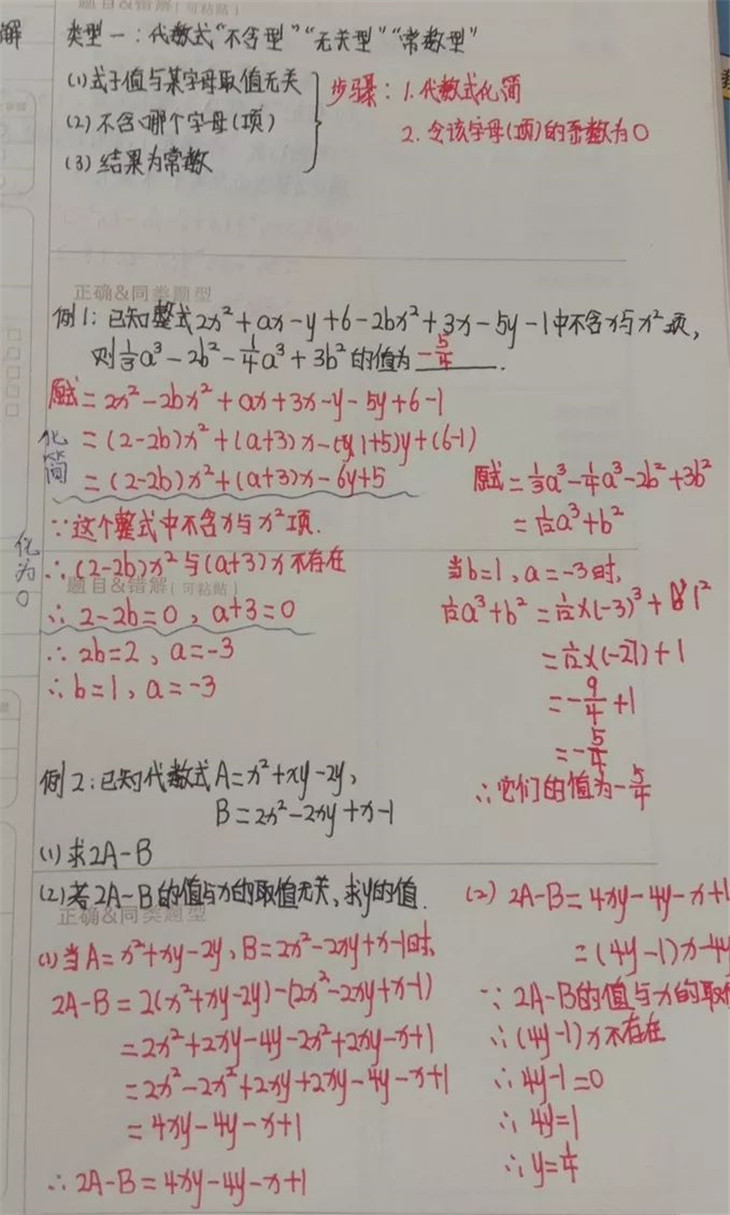 题目&错解(可粘贴)
解
类型一：代数式“不含型”“无关型”“常数型”
(1)式子值与某字母取值无关
(2)不含哪个字母(项)
(3)结果为常数
步骤：1.代数式化简
2.令该字母(项)的系数为0
正确&同类题型
例1：已知整式2x²+ax-y+6-2bx²+3x-5y-1中不含x与x²项，
则1/3a³-2b²-1/4a³+3b²的值为 -5/4 .
原式=2x²-2bx²+ax+3x-y-5y+6-1
化简
=(2-2b)x²+(a+3)x-(1+5)y+(6-1)
=(2-2b)x²+(a+3)x-6y+5
∵这个整式中不含x与x²项.
化为0
∴(2-2b)x²与(a+3)x不存在
题目&错解(可粘贴)
∴2-2b=0，a+3=0
∴2b=2，a=-3
∴b=1，a=-3
原式=1/3a³-1/4a³-2b²+3b²
=1/12a³+b²
当b=1，a=-3时，
1/12a³+b²=1/12×(-3)³+1²
=1/12×(-27)+1
=-9/4+1
=-5/4
∴它们的值为-5/4
例2：已知代数式A=x²+xy-2y，
B=2x²-2xy+x-1
(1)求2A-B
(2)若2A-B的值与x的取值无关，求y的值.
正确&同类题型
(1)当A=x²+xy-2y，B=2x²-2xy+x-1时，
2A-B=2(x²+xy-2y)-(2x²-2xy+x-1)
=2x²+2xy-4y-2x²+2xy-x+1
=2x²-2x²+2xy+2xy-4y-x+1
=4xy-4y-x+1
∴2A-B=4xy-4y-x+1
(2)2A-B=4xy-4y-x+1
=(4y-1)x-4y
∵2A-B的值与x的取
∴(4y-1)x不存在
∴4y-1=0
∴4y=1
∴y=1/4